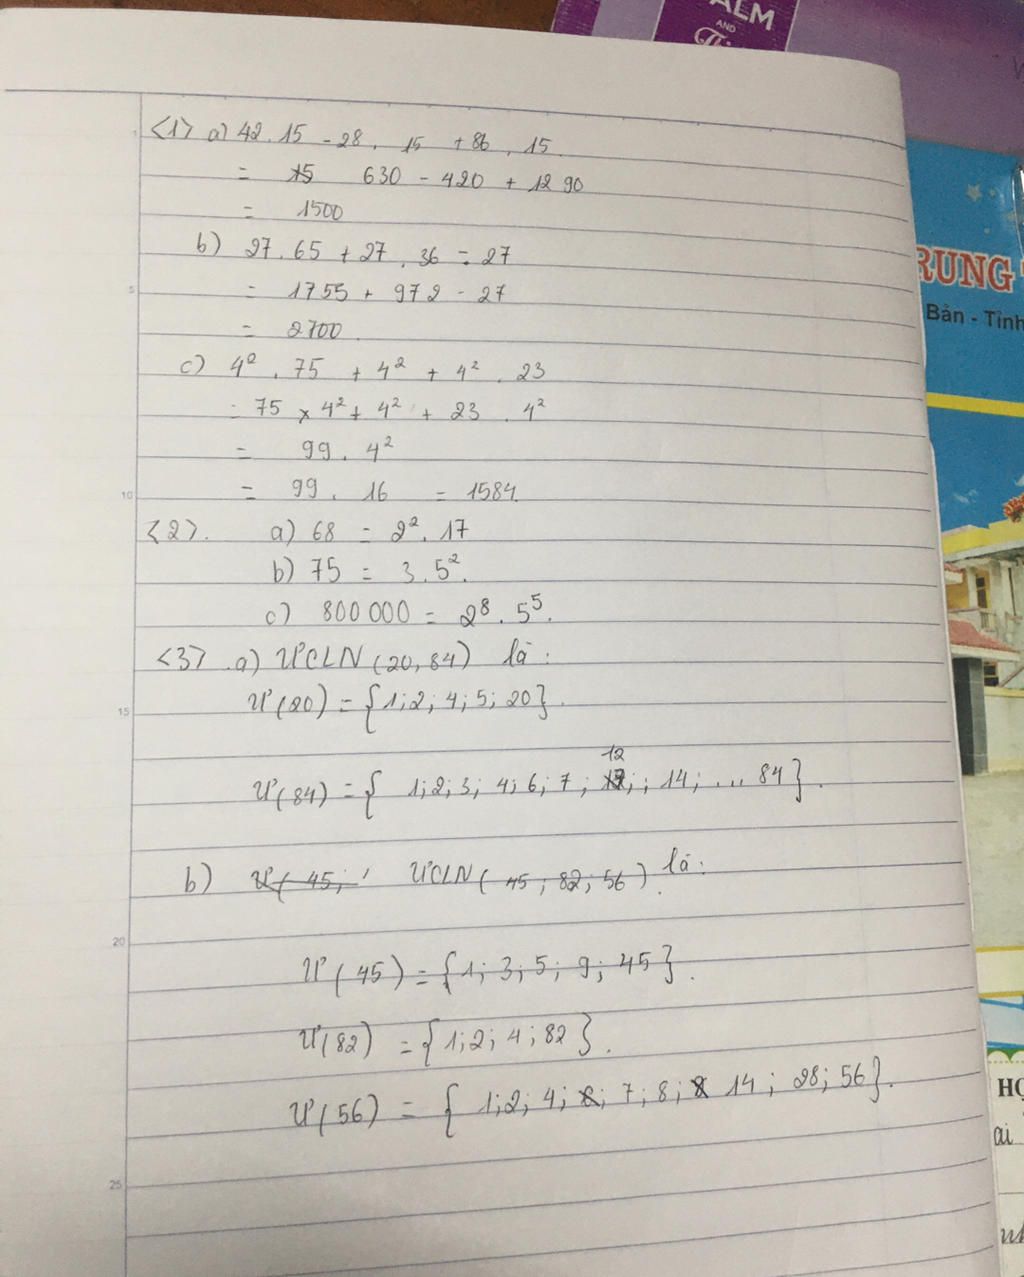 ALM
AND
<1> a) 42 . 15 - 28 . 15 + 86 . 15
= 15 630 - 420 + 1290
= 1500
b) 27 . 65 + 27 . 36 - 27
= 1755 + 972 - 27
= 2700
c) 4² . 75 + 4² + 4² . 23
= 75 × 4² + 4² + 23 . 4²
= 99 . 4²
= 99 . 16 = 1584
<2>. a) 68 = 2² . 17
b) 75 = 3 . 5².
c) 800 000 = 2⁸ . 5⁵.
<3> a) ƯCLN (20, 84) là :
Ư(20) = {1; 2; 4; 5; 20}.
12
Ư(84) = { 1; 2; 3; 4; 6; 7; ; 14; ... 84}.
b) Ư( 45; ƯCLN ( 45 ; 82; 56) là :
Ư( 45) = {1; 3; 5; 9; 45}.
Ư(82) = {1; 2; 4; 82}.
Ư(56) = { 1; 2; 4; 7; 8; 14; 28; 56}.
1
5
10
15
20
25
RUNG
Bản - Tỉnh
HỌ
ai